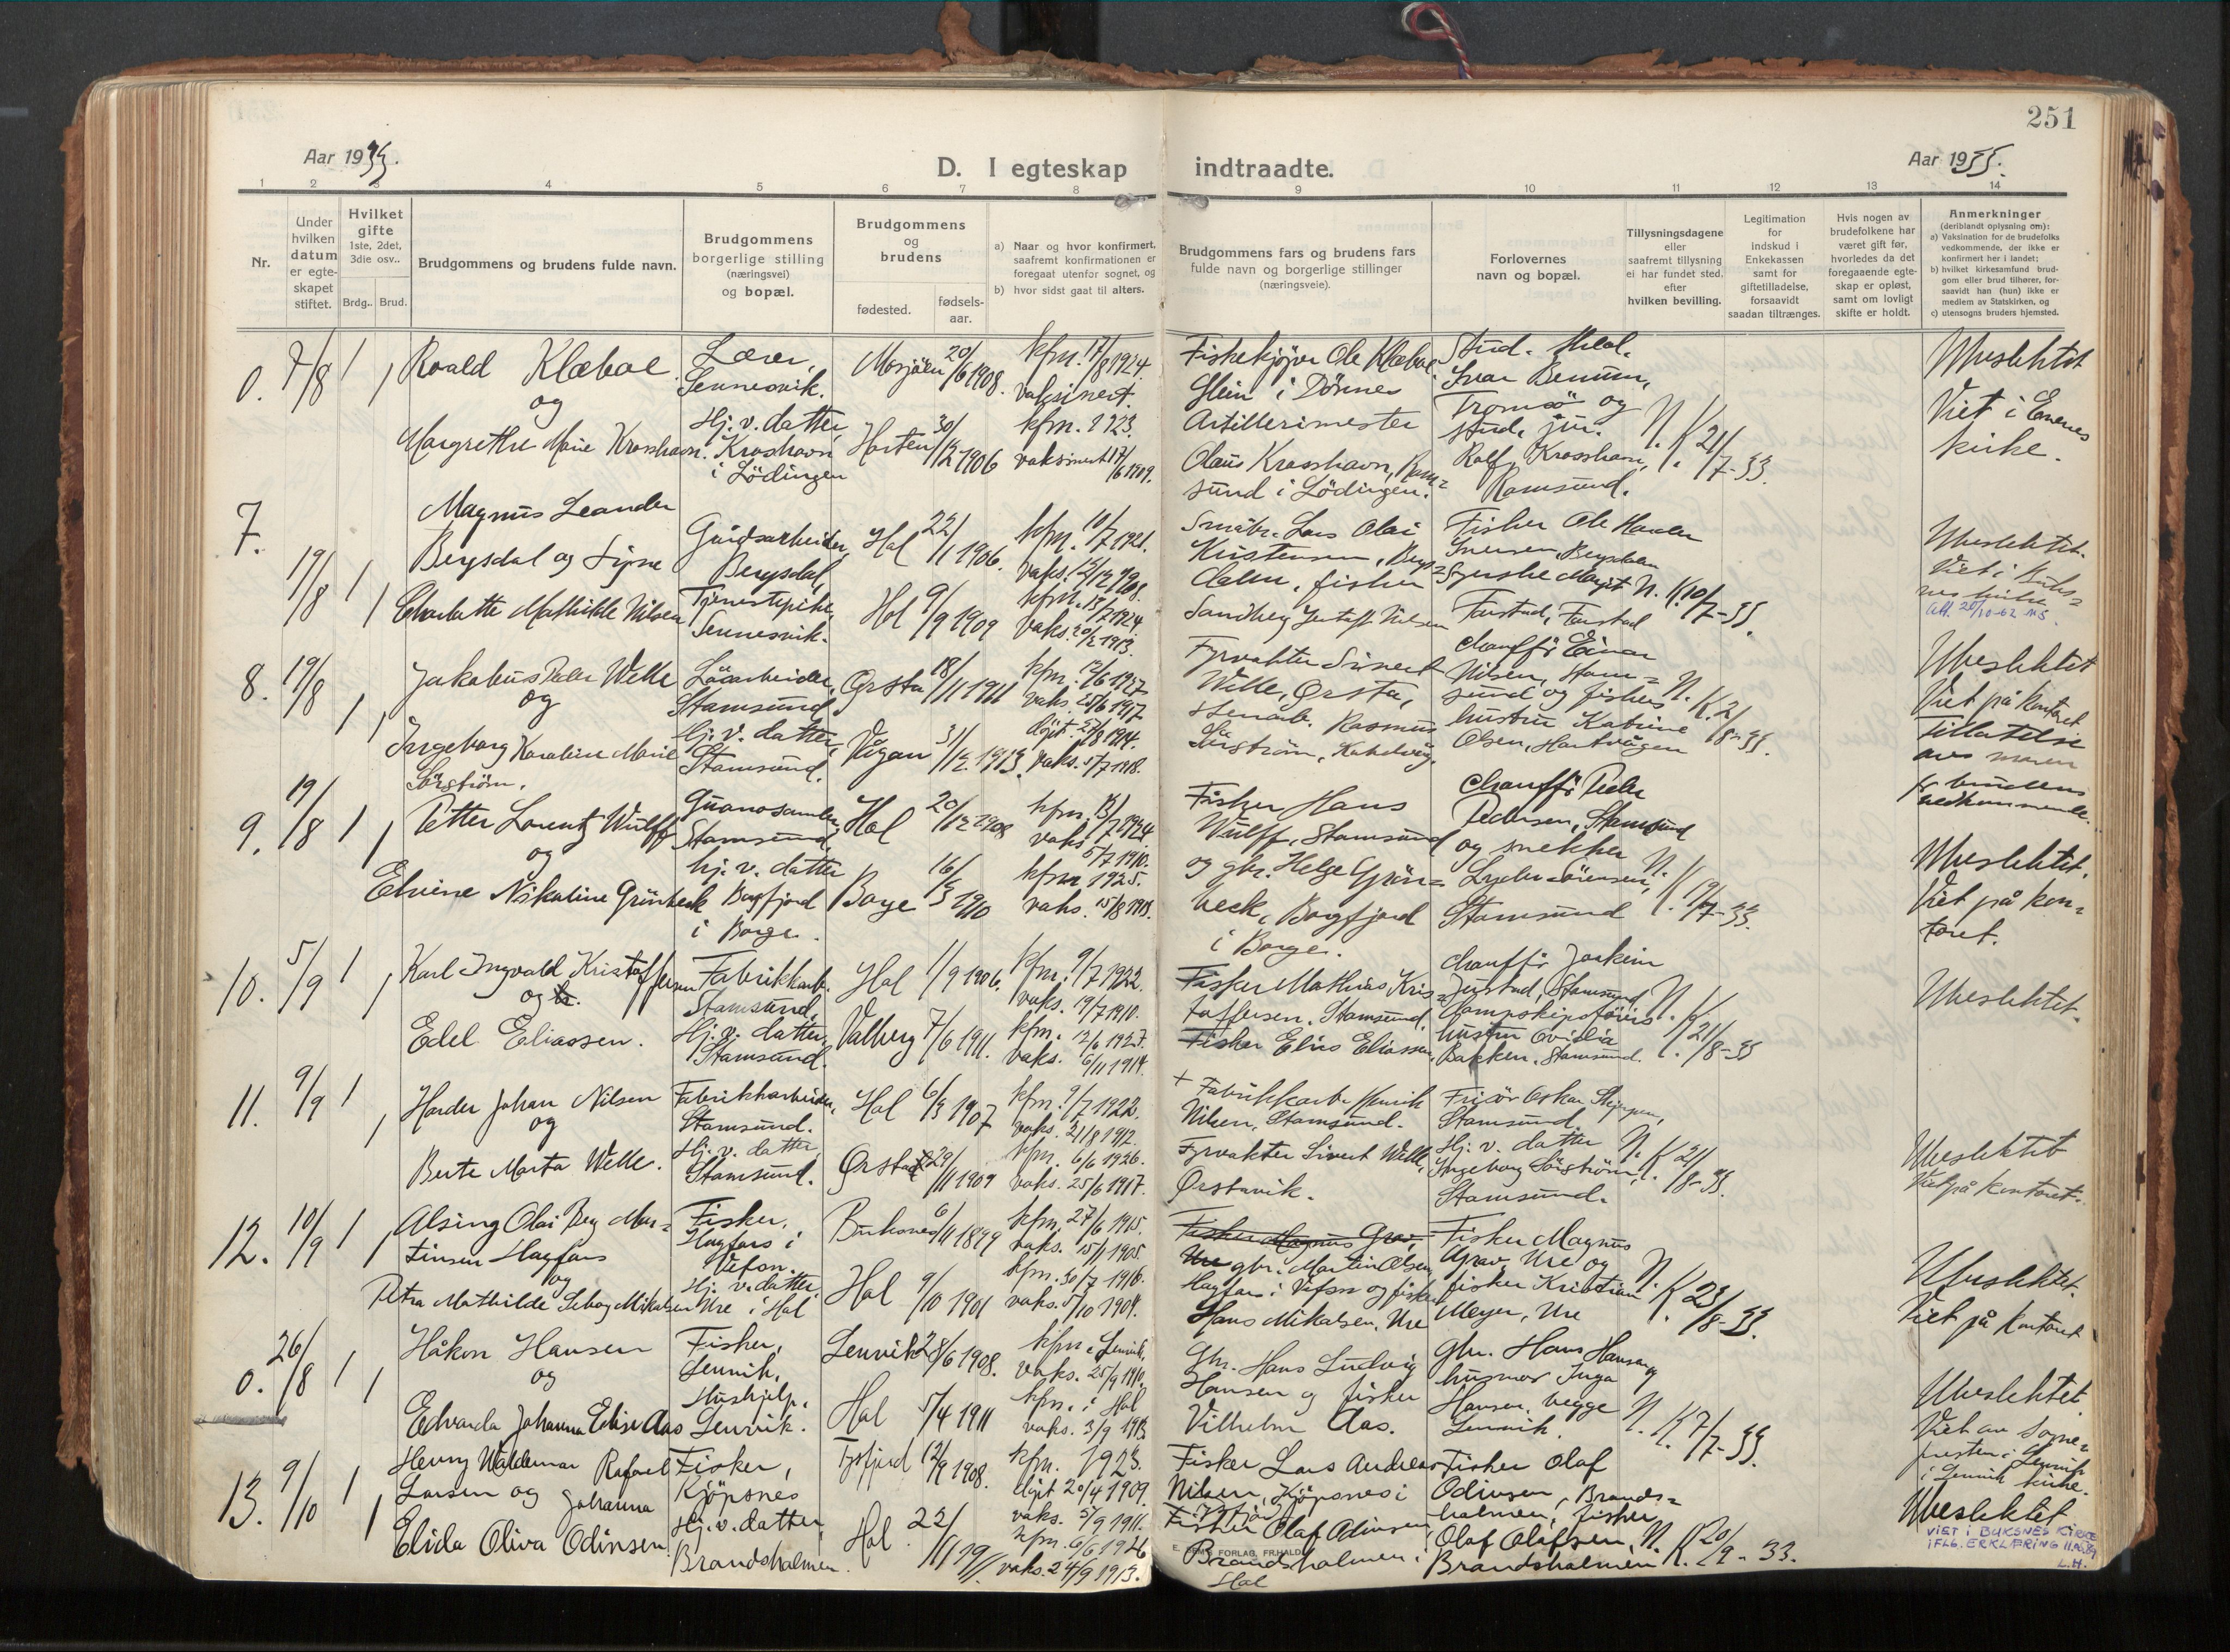 251
Aar 1933.
D. I egteskap indtraadte.
Aar 1933.
1 2 3 4 5 6 7 8 9 10 11 12 13 14
Nr.
Under hvilken datum er egteskapet stiftet.
Hvilket gifte
1ste, 2det, 3die osv..
Brdg.. Brud.
Brudgommens og brudens fulde navn.
Brudgommens borgerlige stilling (næringsvei) og bopæl.
Brudgommens og brudens
fødested.
fødselsaar.
a) Naar og hvor konfirmert, saafremt konfirmationen er foregaat utenfor sognet, og
b) hvor sidst gaat til alters.
Brudgommens fars og brudens fars fulde navn og borgerlige stillinger (næringsveie).
Forlovernes navn og bopæl.
Tillysningsdagene eller saafremt tillysning ei har fundet sted, efter hvilken bevilling.
Legitimation for indskud i Enkekassen samt for giftetilladelse, forsaavidt saadan tiltrænges.
Hvis nogen av brudefolkene har været gift før, hvorledes da det foregaaende egteskap er opløst, samt om lovligt skifte er holdt.
Anmerkninger
(deriblandt oplysning om):
a) Vaksination for de brudefolks vedkommende, der ikke er konfirmert her i landet;
b) hvilket kirkesamfund brudgom eller brud tilhører, forsaavidt han (hun) ikke er medlem av Statskirken, og
c) utensogns bruders hjemsted.
0. 7/8 1 1
Roald Klæboe
og
Margrethe Marie Krosshavn.
Lærer,
Sennesvik.
Hj. v. datter
Kroshavn
i Lödingen
Mosjöen 20/6 1908.
Horten 30/12 1906
kfm. 17/8 1924.
vaksinert.
kfm. 1923.
vaksinert 17/6 1909.
Fiskekjöper Ole Klæboe
Glein i Dönnes
Artillerimester
Olaus Krosshavn, Ram=
sund i Lödingen.
Stud. theol.
Ivar Benum,
Tromsö og
stud. jur.
Rolf Krosshavn,
Ramsund.
N. K. 21/7-33.
Ubeslektet
Viet i Evenes
kirke.
7. 19/8 1 1
Magnus Leander
Bergsdal og Signe
Charlotte Mathilde Nilsen
Gaardsarbeider,
Bergsdal,
Tjenestepike,
Sennesvik.
Hol 22/1 1906.
Hol 9/9 1909
kfm. 10/7 1921.
vaks. 12/12 1908.
kfm. 13/7 1924.
vaks. 20/2 1913.
Småbr. Lars Olai
Kristensen, Bergs=
dalen, fisker
Sandberg Gustaft Nilsen
Fisker Ole Harder
Iversen, Bergsdalen
Syerske Margit
Farstad, Farstad
N. K. 10/7-33.
Ubeslektet.
Viet i Buks=
nes kirke
Att. 20/10-62
8. 19/8 1 1
Jakobus Peder Welle
og
Ingeborg Karoline Marie
Sörström.
Lösarbeider,
Stamsund
Hj. v. datter,
Stamsund.
Ørsta 18/11 1911
Vågan 31/12 1913.
kfm. 12/6 1927
vaks. 25/6 1917
döpt 23/8 1914.
vaks. 5/7 1918.
Fyrvakter Sivert
Welle, Ørsta,
stenarb. Rasmus
Sörström, Kabelvåg.
chaufför Einar
Nilsen, Stam=
sund og fiskers
hustru Katrine
Olsen, Hartvågen
N. K. 2/8-33.
Ubeslektet
Viet på kontoret
Tillatelse
av moren
for brudens
vedkommende.
9. 19/8 1 1
Petter Lorentz Wulff
og
Elvine Nikoline Grönbeck
Guanosamler,
Stamsund,
hj. v. datter
Borgfjord
i Borge.
Hol 20/12 1908
Borge 16/3 1910
kfm. 13/7 1924
vaks. 5/7 1910.
kfm 1925.
vaks. 15/8 1913.
Fisker Hans
Wulff, Stamsund
og gbr. Helge Grön=
beck, Borgfjord
i Borge.
chaufför Peder
Pedersen, Stamsund
og snekker
Lyder Sörensen,
Stamsund
N. K. 19/7-33.
Ubeslektet.
Viet på kon=
toret.
10. 5/9 1 1
Karl Ingvald Kristoffersen
og
Edel Eliassen.
Fabrikkarb.
Stamsund,
Hj. v. datter,
Stamsund.
Hol 1/9 1906.
Valberg 7/6 1911.
kfm. 9/7 1922.
vaks. 19/7 1910.
kfm. 12/6 1927.
vaks. 6/11 1914.
Fisker Mathias Kris=
toffersen, Stamsund,
Fisker Elias Eliassen,
chaufför Joakim
Justad, Stamsund
Dampskipsförers
hustru Ovidia
Bakken, Stamsund.
N. K. 21/8-33
Ubeslektet.
11. 9/9 1 1
Harder Johan Nilsen
og
Berte Marta Welle.
Fabrikkarbeider,
Stamsund.
Hj. v. datter,
Stamsund.
Hol 6/3 1907
Ørsta 29/11 1909
kfm. 9/7 1922.
vaks. 21/8 1912.
kfm. 6/6 1926.
vaks. 25/6 1917.
+ Fabrikkarb. Henrik
Nilsen, Stamsund.
Fyrvakter Sivert Welle,
Ørstavik.
Frisör Oskar
Stamsund.
Hj. v. datter
Ingeborg Sörström,
Stamsund.
N. K. 21/8-33.
Ubeslektet
Viet på kontoret.
12. 10/9 1 1
Alsing Olai Berg Mar=
tinsen Hagfors
og
Petra Mathilde Seberg Mikalsen
Fisker,
Hagfors i
Vefsn.
Hj. v. datter,
Ure i Hol
Buksnes 6/11 1899
Hol 9/10 1901
kfm. 27/6 1915.
vaks. 15/11 1905.
kfm. 30/7 1916.
vaks. 5/10 1904.
Fisker Magnus Grav,
Ure gbr. Martin Olsen
Hagfors i Vefsn og fisker
Hans Mikalsen, Ure
Fisker Magnus
Grav, Ure og
fisker Kristian
Meyer, Ure
N. K. 23/8-33.
Ubeslektet.
Viet på kontoret
0. 26/8 1 1
Håkon Hansen
og
Edvarda Johanna Elise Aas
Fisker,
Lenvik,
Hushjelp,
Lenvik.
Lenvik 28/6 1908.
Hol 5/4 1911
kfm. Lenvik,
vaks. 25/9 1910.
kfm. i Hol
vaks. 3/9 1913.
Gbr. Hans Ludvig
Hansen og fisker
Vilhelm Aas.
Gbr. Hans Hansen og
husmor Inga
Hansen, begge
Lenvik.
N. K. 7/7-33.
Ubeslektet
Viet av Sogne=
presten i Lenvik
i Lenvik kirke.
13. 9/10 1 1
Henry Waldemar Rafael
Larsen og Johanna
Elida Oliva Odinsen
Fisker,
Kjöpsnes
Hj. v. datter,
Brandsholmen.
Tysfjord 12/9 1908.
Hol 22/11 1911.
kfm. 1923.
döpt 20/4 1909.
vaks. 5/9 1911.
kfm. 6/6 1926
vaks. 24/9 1913.
Fisker Lars Andreas
Nilsen, Kjöpsnes i
Tysfjord
Fisker Olaf Odinsen,
Brandsholmen i
Hol
Fisker Olaf
Odinsen, Brands=
holmen, fisker
Olaf Olafsen,
Brandsholmen
N. K. 20/9-33.
Ubeslektet
VIET I BUKSNES KIRKE
IFLG. ERKLÆRING
L.H.